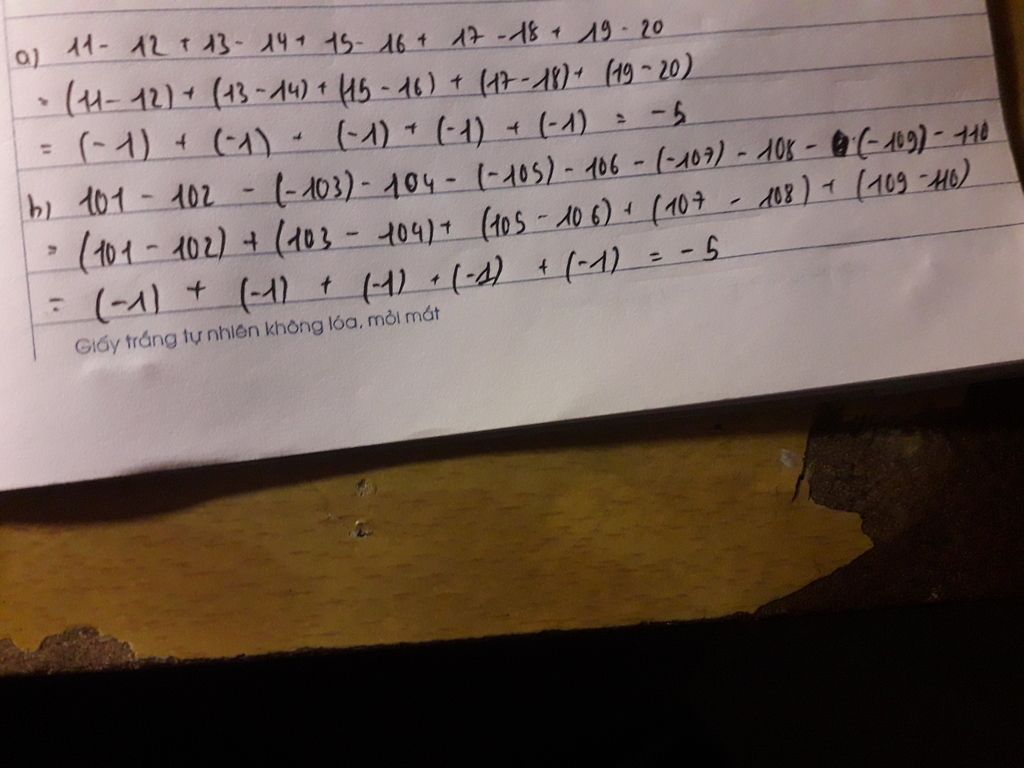 a) 11 - 12 + 13 - 14 + 15 - 16 + 17 - 18 + 19 - 20
= (11 - 12) + (13 - 14) + (15 - 16) + (17 - 18) + (19 - 20)
= (-1) + (-1) + (-1) + (-1) + (-1) = -5
b) 101 - 102 - (-103) - 104 - (-105) - 106 - (-107) - 108 - (-109) - 110
= (101 - 102) + (103 - 104) + (105 - 106) + (107 - 108) + (109 - 110)
= (-1) + (-1) + (-1) + (-1) + (-1) = -5
Giấy trắng tự nhiên không lóa, mỏi mắt